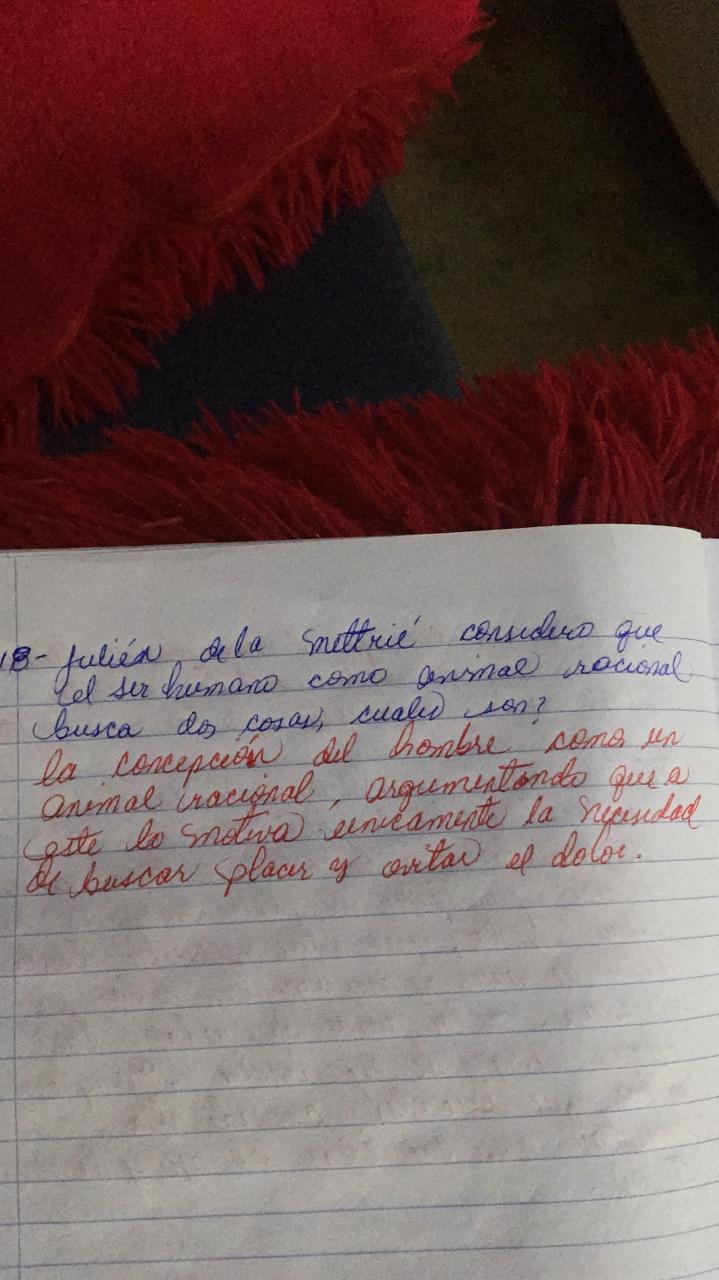 18- Julién de la Mettrié considero que
el ser humano como animal racional
busca dos cosas, cuales son?
la concepción del hombre como un
animal racional, argumentando que a
este lo motiva unicamente la necesidad
de buscar placer y evitar el dolor.